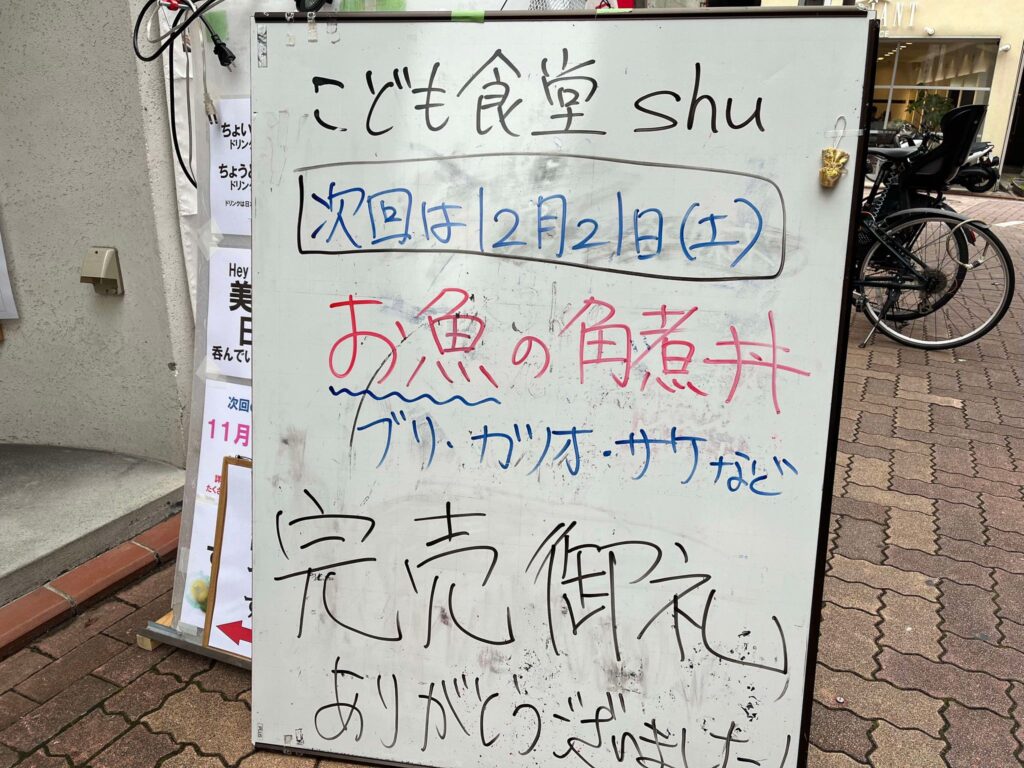 こども食堂 shu
次回は12月21日(土)
お魚の角煮丼
ブリ・カツオ・サケなど
完売御礼
ありがとうございました
ちょい
ドリンク
ちょうど
ドリンク
Hey
美
呑んでい
次回の
11月